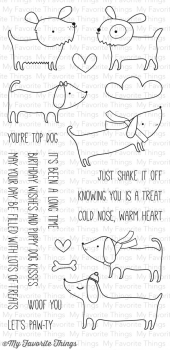 YOU'RE TOP DOG
IT'S BEEN A LONG TIME
BIRTHDAY WISHES AND PUPPY DOG KISSES
MAY YOUR DAY BE FILLED WITH LOTS OF TREATS
JUST SHAKE IT OFF
KNOWING YOU IS A TREAT
COLD NOSE, WARM HEART
WOOF YOU
LET'S PAW-TY
©My Favorite Things